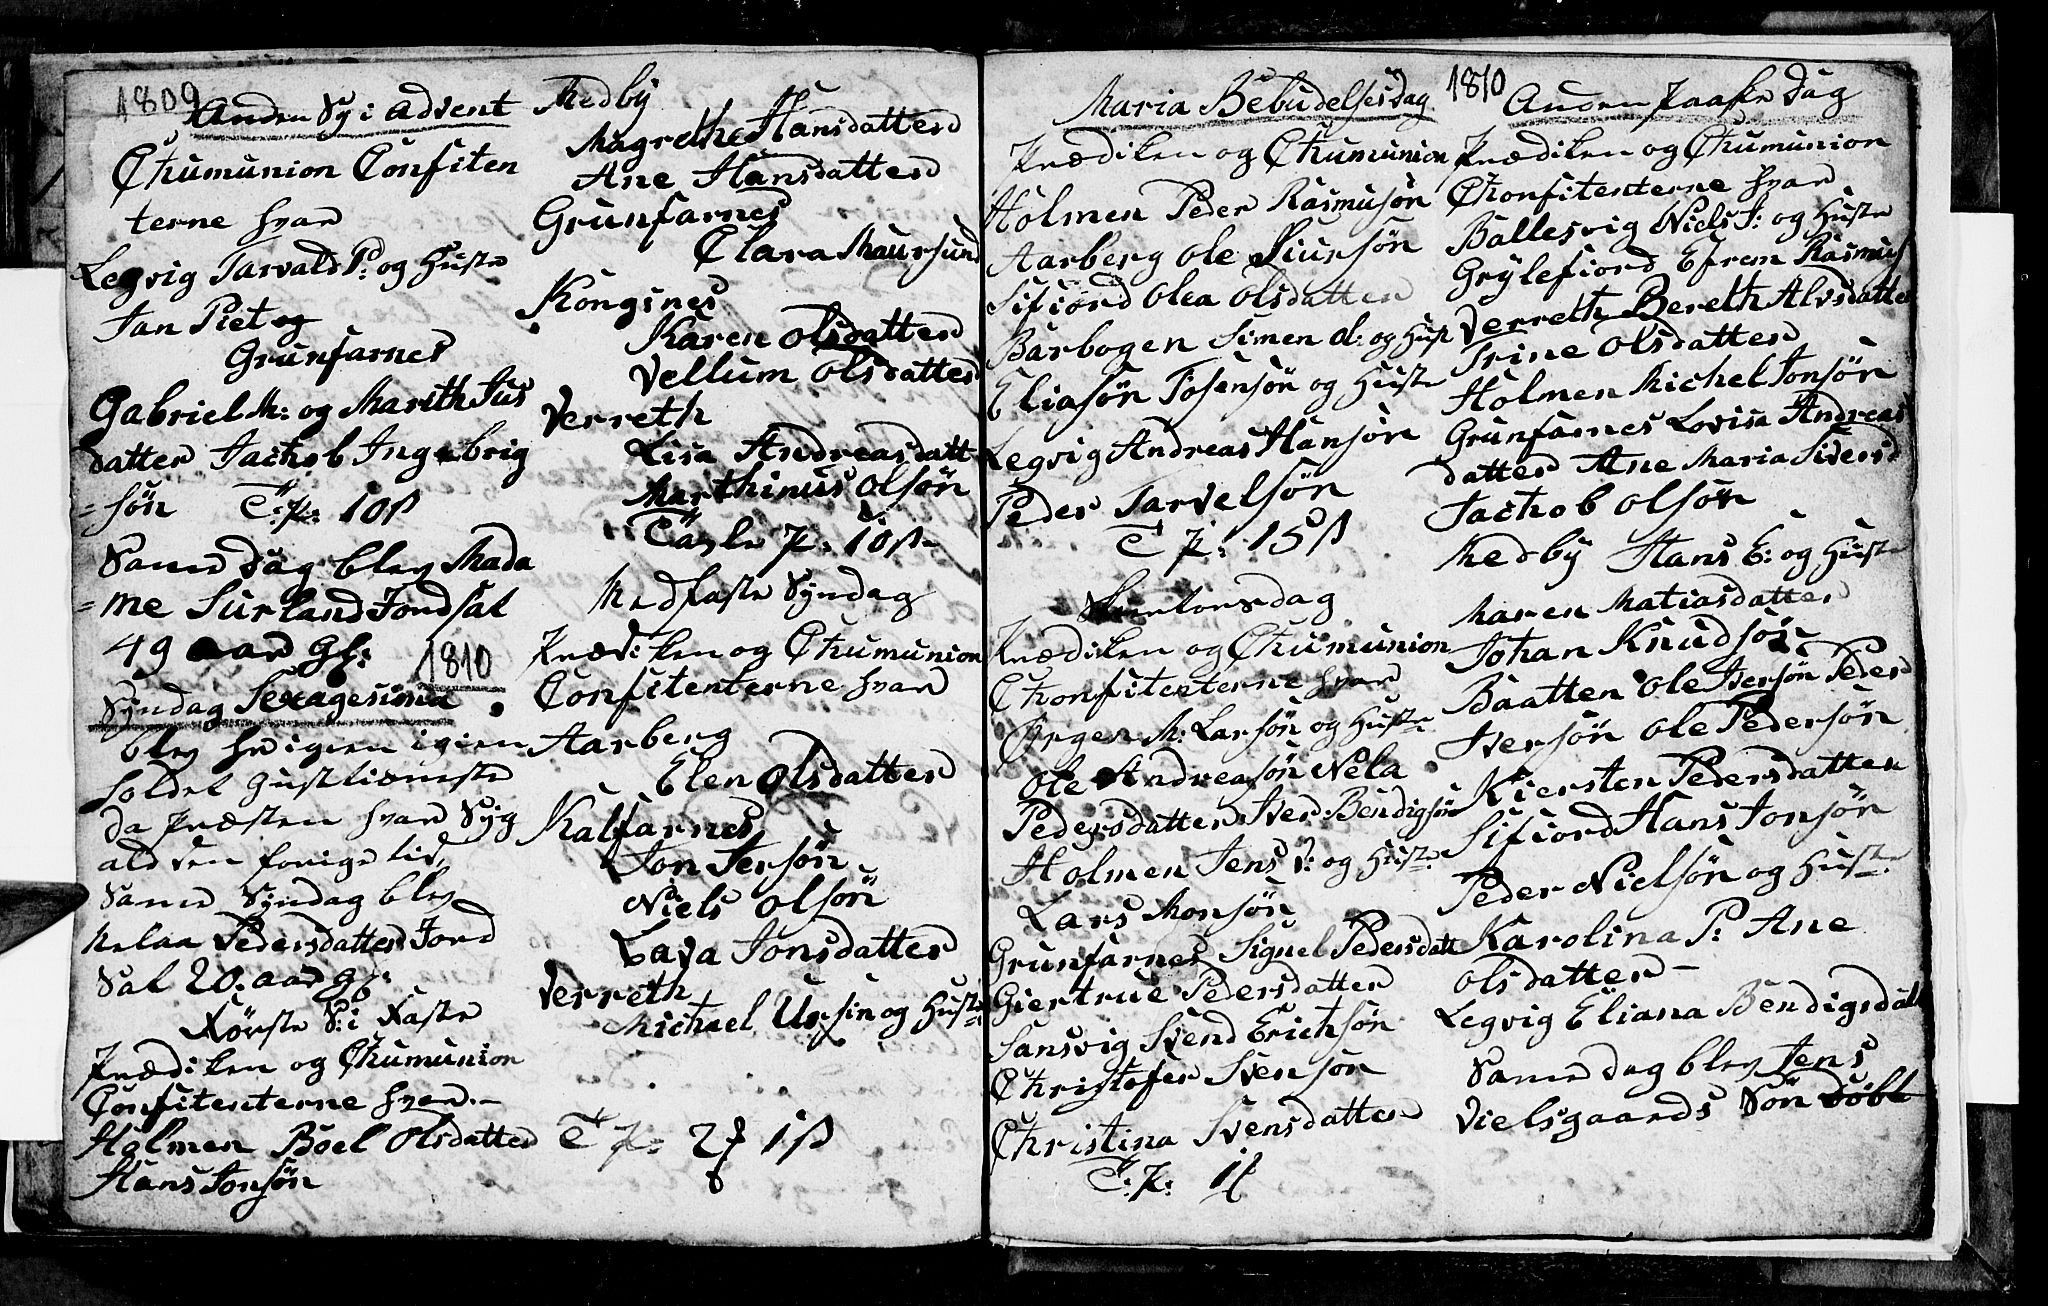 1809
Anden Sy i Advent
Chumunion Confiten
terne hvar
Legvig Tarvald P: og Hustr
Jan Piet og
Grunfarnes
Gabriel M: og Marith Jus
datter Jachob Ingebrig
=sön T: p: 10 ß
Same dag blev Mada
=me Surland Jondsat
49 aar Gl:
1810
Syndag Sexagesima
blev hr igien igien
holdet gustieneste
da Præsten hvar Syg
ald den forige tid
Same Syndag blev
Melaa Pedersdatter Jord
Sat 20. aar gl:
Förste S: i Faste
Prædiken og Chumunion
Confitenterne hvar
Holmen Boel Olsdatter
Hans Jonsön
Medby
Magrethe Hansdatter
Ane Hansdatter
Grunfarnes
Clara Maursund
Kongsnes
Karen Olsdatter
Vellum Olsdatter
Verreth
Lisa Andreasdatt
Marthinus Olsön
Tavle p: 10 ß
Medfaste Syndag
Prædiken og Chumunion
Confitenterne hvar
Aarberg
Elen Olsdatter
Kalfarnes
Jon Jersön
Niels Olsön
Lava Jonsdatter
Verreth
Michael Ursin og Hustr
T p: 2 1 ß
Maria Bebudelsesdag
Prædiken og Chumunion
Holmen Peder Rasmusön
Aarberg Ole Siursön
Sifiord Olea Olsdatter
Barbogen Simen Ol: og Hust
Eliasön Tosensön og Hustr
Legvig Andreas Hansön
Peder Tarvelsön
T p: 15 ß
Skertorsdag
Prædiken og Chumunion
Chonfitenterne hvar
Örgen M: Larsön og Hustr
Ole Andreasön Nela
Pedersdatter Iver Bendigsön
Holmen Jens P: og Hustr
Lars Monsön
Grunfarnes Signel Pedersdatt
Giertrue Pedersdatter
Sansvig Svend Erichsön
Christofer Svensön
Christina Svensdatter
T: p: 1
1810
Anden Paaske Dag
Prædiken og Chumunion
Chonfitenterne hvar
Ballesvig Niels J: og Hustr
Grÿlefiord Efrem Rasmus
Verreth Bereth Alvsdatter
Trine Olsdatter
Holmen Michel Jonsön
Grunfarnes Lovisa Andreas
datter Ane Maria Siversd
Jachob Olsön
Medby Hans E: og Hustr
Maren Matiasdatter
Johan Knudsön
Baatten Ole Iversön Peder
Iversön Ole Pedersön
Kiersten Pedersdatter
Sifiord Hans Jonsön
Peder Nielsön og Hustr
Karolina P: Ane
Olsdatter
Legvig Eliana Bendigsdatt
Same dag blev Jens
Vielsgaards Sön döbt